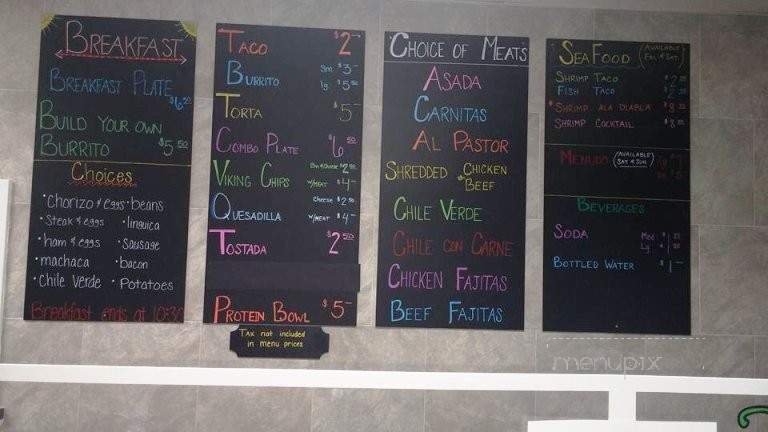 BREAKFAST
BREAKFAST PLATE
$6.50
BUILD YOUR OWN
BURRITO $5.50
Choices
• Chorizo & eggs • beans
• Steak & eggs • linguica
• ham & eggs • Sausage
• machaca • bacon
• Chile Verde • Potatoes
Breakfast ends at 10:30
TACO $2-
BURRITO sm $3-
lg $5.50
TORTA $5-
COMBO PLATE $6.50
VIKING CHIPS Bean & Cheese $2.50
w/MEAT $4-
QUESADILLA Cheese $2.50
w/MEAT $4-
TOSTADA $2.50
PROTEIN BOWL $5-
TAX not included
in menu prices
CHOICE OF MEATS
ASADA
CARNITAS
AL PASTOR
SHREDDED • CHICKEN
• BEEF
CHILE VERDE
CHILE CON CARNE
CHICKEN FAJITAS
BEEF FAJITAS
SEAFOOD (AVAILABLE
FRI & SAT)
SHRIMP TACO
FISH TACO
SHRIMP ALA DIABLA
SHRIMP COCKTAIL
MENUDO (AVAILABLE
SAT & SUN)
BEVERAGES
SODA Med
Lg
BOTTLED WATER $1-
menupix